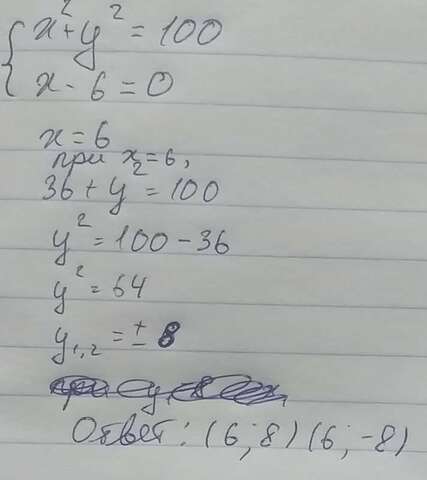 x² + y² = 100
x - 6 = 0
x = 6
при x = 6,
36 + y² = 100
y² = 100 - 36
y² = 64
y₁,₂ = ± 8
Ответ: (6; 8) (6; -8)